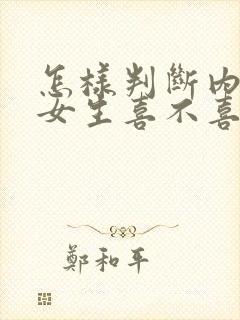 怎樣判斷內
女生喜不喜
鄭和平